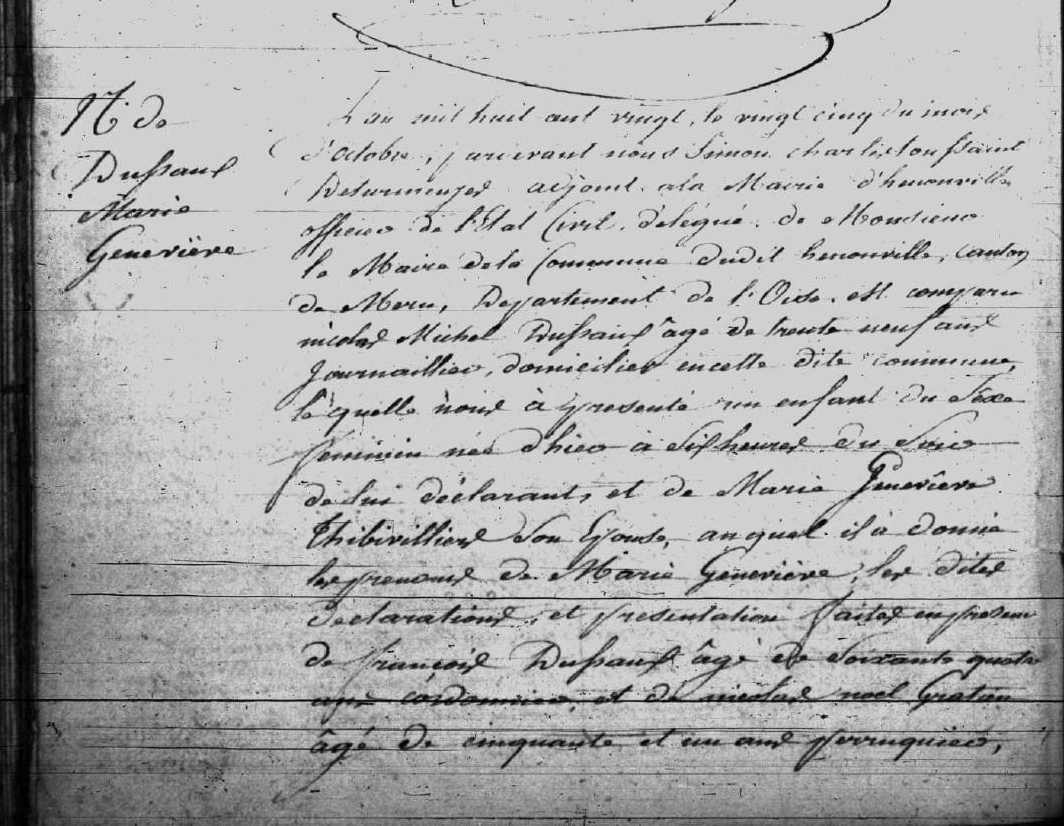 N.ce de
Dussaux
Marie
Geneviève
L'an mil huit cent vingt, le vingt cinq du mois
d'octobre, parevant nous Simon charles toussaint
adjoint a la Mairie d'henonville
officier de l'Etat Civil, délégué de Monsieur
le Maire de la Commune dudit henonville, canton
de Meru, Departement de l'Oise. est comparu
nicolas Michel Dussaux âgé de trente neuf ans
Journaillier, domicilier en cette dite commune,
lequelle nous à presenté un enfant du Sexe
feminin née d'hier à Six heures du Soir
de lui déclarant, et de Marie Geneviève
Thibivilliers Son Epouse, auquel il à donné
les prenoms de Marie Geneviève, les dites
déclarations, et presentation faites en presence
de françois Dussaux âgé de Soixante quatre
ans cordonnier, et de nicolas noel
âgé de cinquante et un ans perruquier,